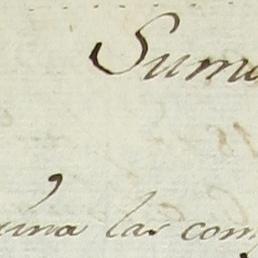 Sum
una las com